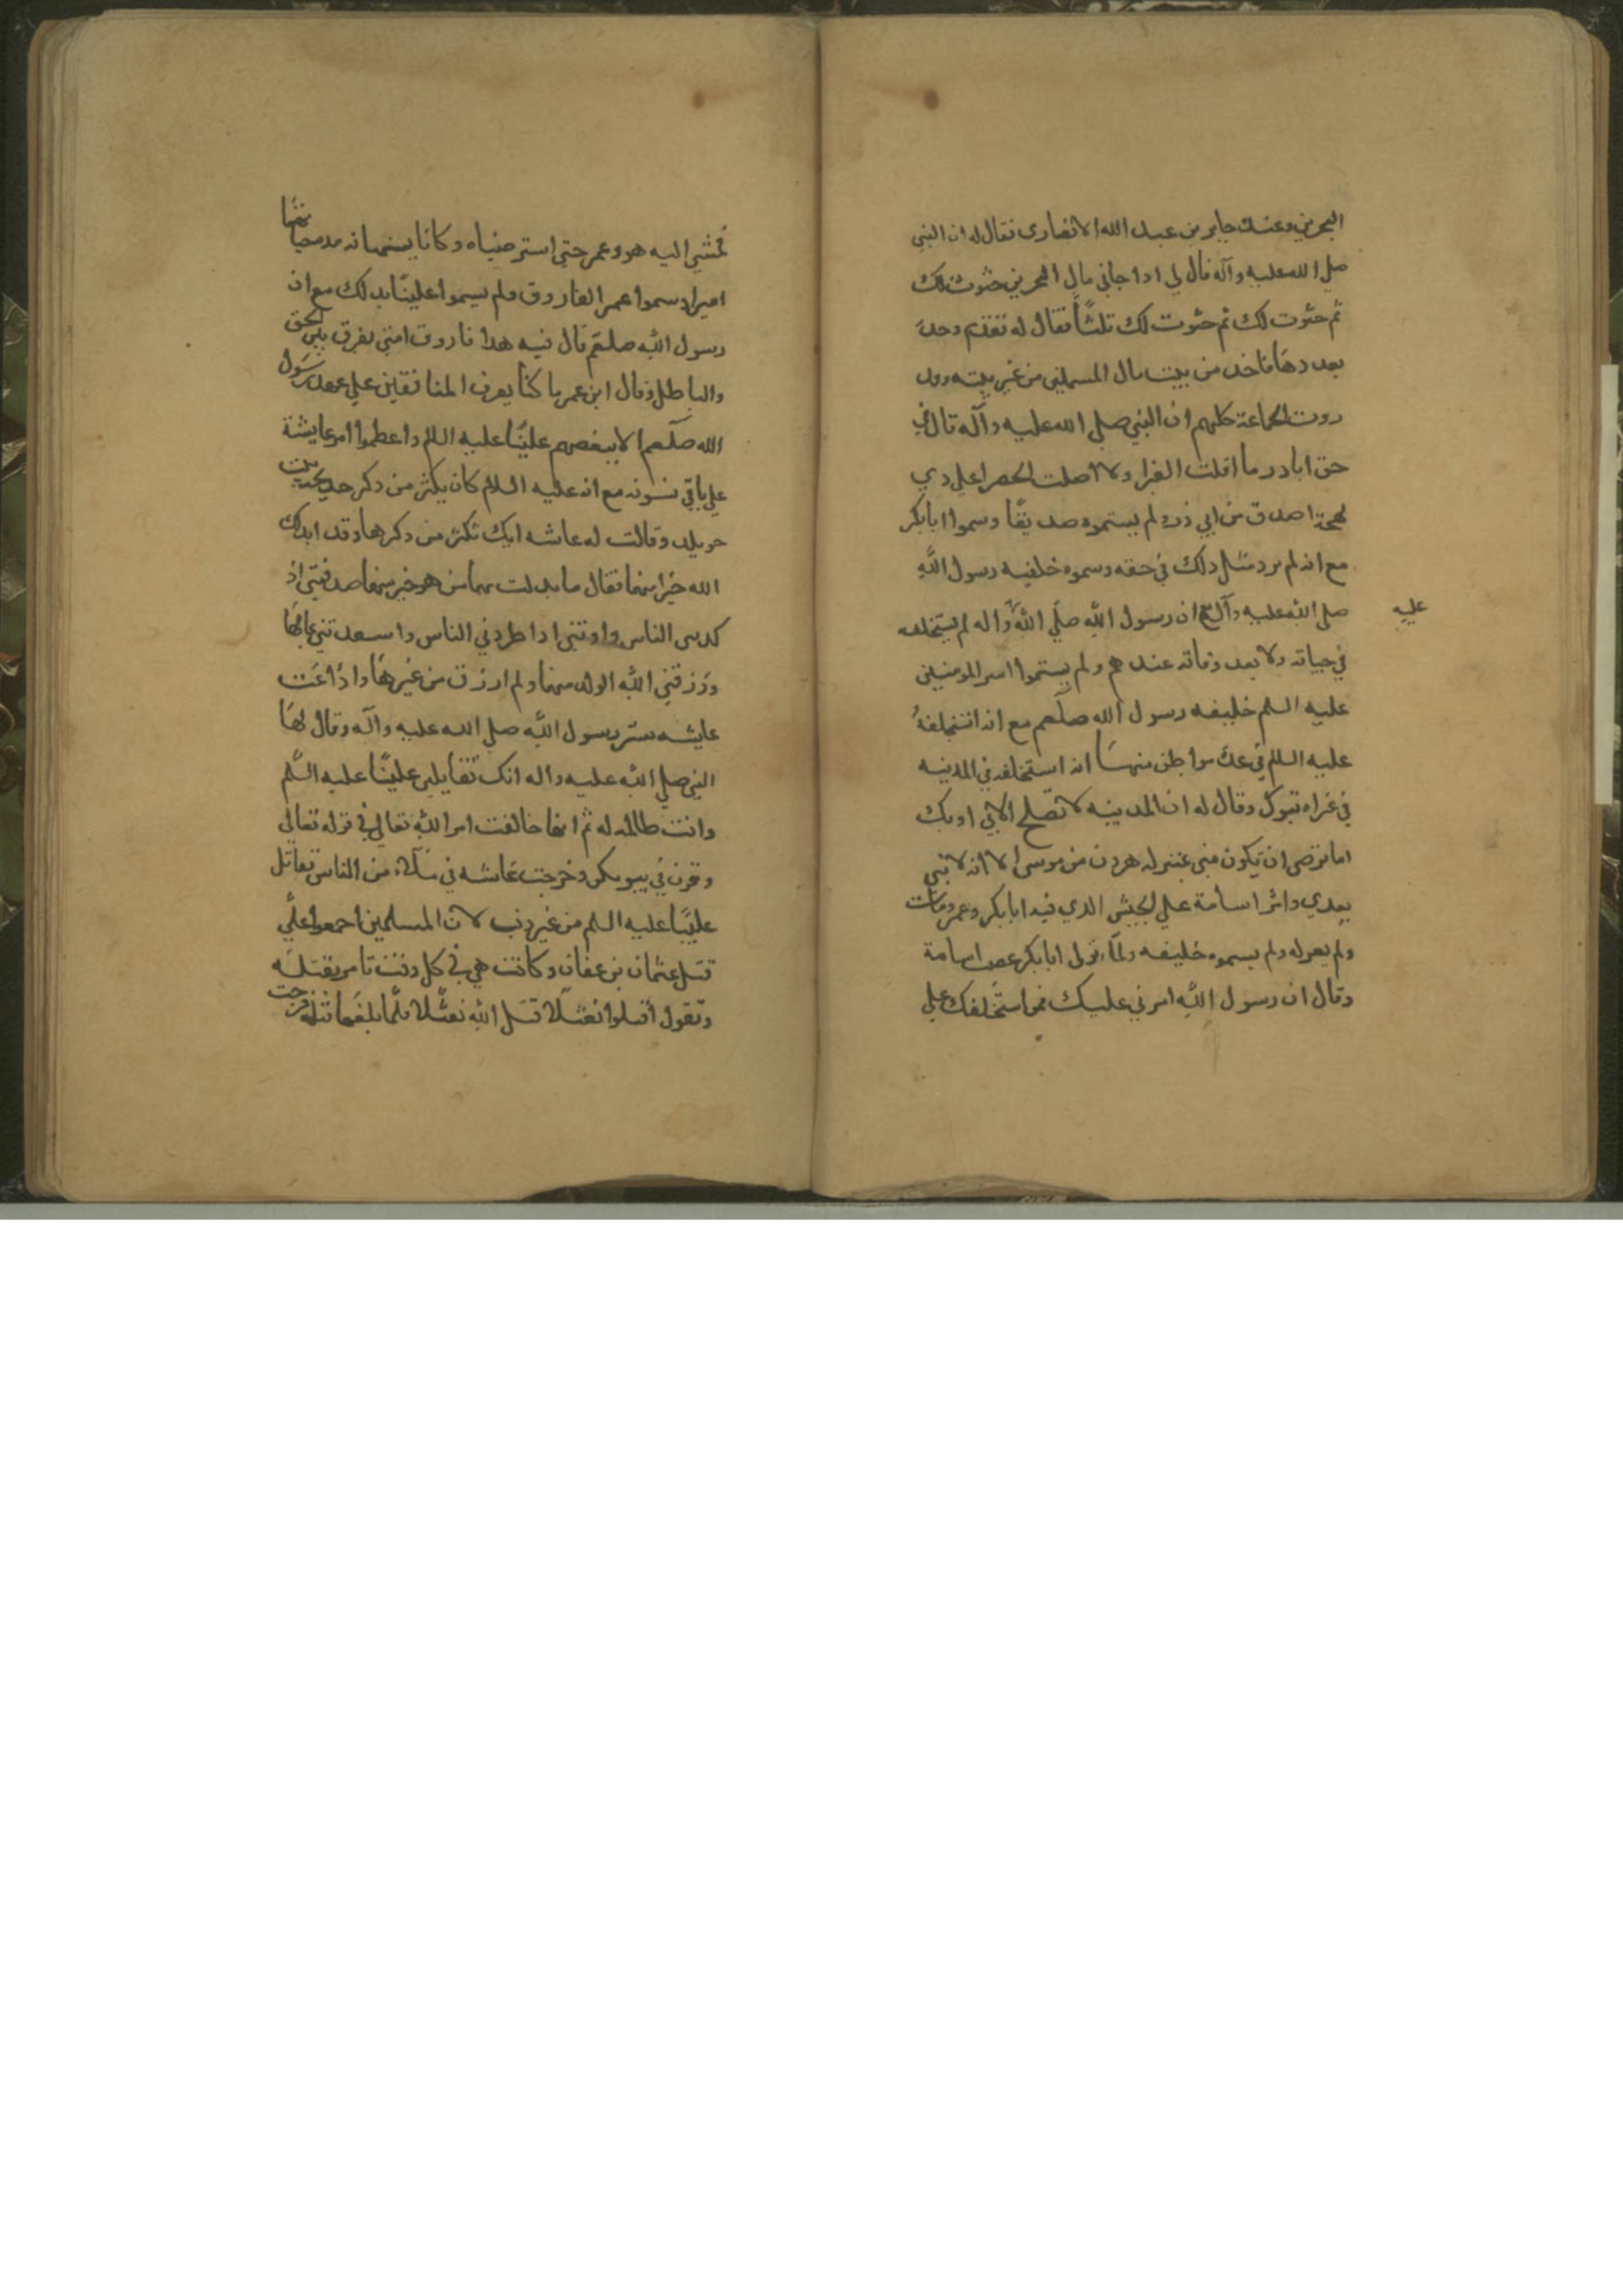 البحرين وعنده جابر بن عبد الله الانصارى فقال له ان النبي
صلي الله عليه وآله قال لي اذا جاني مال البحرين حثوت لك
ثم حثوت لك ثم حثوت لك ثلثًا فقال له تقدم وخذ
بعددها فاخذ من بيت مال المسلمين من غير بينه وقد
روت الجماعة كلهم ان النبي صلي الله عليه وآله قال في
حق ابا در ما اقلت الغبرا ولا اضلت الخضرا علي دي
لهجة اصدق من ابي ذر ولم يسموه صديقًا وسموا ابا بكر
مع انه لم يرد مثل دلك في حقه وسموه خليفه رسول الله
صلي الله عليه وآله مع ان رسول الله صلي الله وآله لم يستخلفه
عليه
في حياته ولا بعد وفاته عندهم ولم يسموا امير المومنين
عليه السلم خليفه رسول الله صلعم مع انه استخلفهُ
عليه السلم في عدة مواطن منها انه استخلفه في المدينه
في غزاه تبوك وقال له ان المدينه لا تصلح الا بي او بك
اما ترضى ان تكون مني بمنزله هرون من موسى الا انه لا نبي
بعدي وامر اسامة علي الجيش الدي فيه ابا بكر وعمر ومات
ولم يعزله ولم يسموه خليفه ولمّا تولى ابا بكر غضب اسامة
وقال ان رسول الله امرني عليك فمن استخلفك علي
فمشي اليه هو وعمر حتي استرضياه وكانا يسميانه مده حياتهما
اميرا وسموا عمر الفاروق ولم يسموا عليًا بدلك مع ان
رسول الله صلعم قال فيه هدا فاروق امتي يفرق بين الحق
والباطل وقال ابن عمر ما كنا يعرف المنافقين علي عهد رسول
الله صلعم الا ببغضهم عليًا عليه السلم واعظموا امر عايشة
علي باقي نسونه مع انه عليه السلام كان يكثر من دكر خديجه بنت
خويلد وقالت له عاشه انك تكثر من دكرها وقد ابدلك
الله خيرا منها فقال ما بدلت بها من هو خير منها صدقتني اذ
كدبني الناس واوتني ادا طردني الناس واسعدتني بمالها
ورزقني الله الولد منها ولم ارزق من غيرها واذاعت
عايشه سر رسول الله صلي الله عليه وآله وقال لها
النبي صلي الله عليه واله انك تقايلين عليًا عليه السلم
وانت ظالمه له ثم انها خالفت امر الله تعالي في قوله تعالي
وقرن في بيوتكن وخرجت عاشه في ملاء من الناس تقاتل
عليًا عليه السلم من غير ذنب لان المسلمين اجمعوا علي
قتل عثمان بن عفان وكانت هي في كل وقت تامر بقتله
وتقول اقتلوا نعثلا قتل الله نعثلا فلما بلغها قتله فرحت